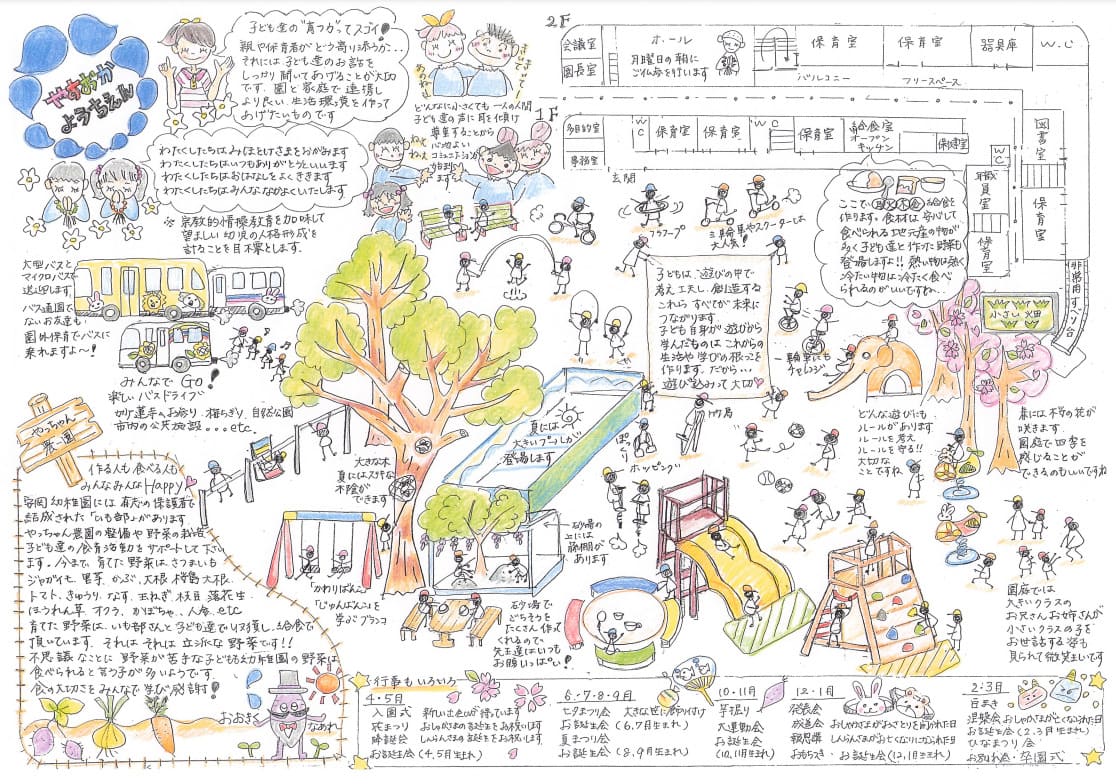 やすおか
ようちえん
子ども達の"育つ力"ってスゴイ!
親や保育者がどう寄り添うか・・・
それには子ども達のお話を
しっかり聞いてあげることが大切
です。園と家庭で連携し
より良い生活環境を作って
あげたいものです
あのねあのね
どんなに小さくても一人の人間
子ども達の声に耳を傾け
尊重することから
心地よい
コミュニケーションが
始まります
ねえねえ
わたくしたちはみほとけさまをおがみます
わたくしたちはいつもありがとうといいます
わたくしたちはおはなしをよくききます
わたくしたちはみんななかよくいたします
※宗教的情操教育を加味して
望ましい幼児の人格形成を
計ることを目標とします。
大型バスと
マイクロバスで
送迎します。
バス通園で
ないお友達も
園外保育でバスに
乗れますよ～!
みんなでGo!
楽しいバスドライブ
市内の公共施設....etc
2F
会議室
園長室
ホール
月曜日の朝に
保育室
保育室
器具庫
W.C
バルコニー
フリースペース
1F
多目的室
事務室
WC
保育室
保育室
WC
保育室
給食室
オープン
キッチン
保健室
図書室
WC
職員室
保育室
保育室
非常用すべり台
玄関
フラフープ
三輪車やスクーターは
大人気!
ここで月火木金給食を
作ります。食材は安心して
食べられる地元産の物が
多く子ども達と作った野菜も
登場しますよ!!熱い物は熱く
冷たい物は冷たく食べ
られるのがいいですね..
小さい畑
子どもは、遊びの中で
考え工夫し、創造する
これら すべてが未来に
つながります。
子ども自身が遊びから
学んだものは これからの
生活や学びの根っこを
作ります。だから...
遊び込みって大切♡
一輪車にも
チャレンジ
竹馬
ぽっくり
ホッピング
どんな遊びにも
ルールがあります
ルールを考え
ルールを守る!!
大切な
ことですね
春には桜の花が
咲きます。
園庭で四季を
感じることが
できるのもいいですね
夏には
大きいプールが
登場します
大きな木
夏にはステキな
木陰が
できます
砂場の
上には
藤棚が
あります
「かわりばんこ」
「じゅんばん」を
学ぶブランコ
砂場で
ごちそうを
たくさん作って
くれるので、
先生達はいつも
お腹いっぱい!
園庭では
大きいクラスの
お兄さんお姉さんが
小さいクラスの子を
お世話する姿も
見られて微笑ましいです
やっちゃん
農園
作る人も食べる人も
みんなみんなHappy♡
安岡幼稚園には有志の保護者で
結成された「いも部」があります
やっちゃん農園の整備や野菜の栽培
子ども達の食育活動をサポートして下さい
ます。今まで、育てた野菜はさつまいも
ジャガイモ 里芋 かぶ、大根 桜島大根、
トマト、きゅうり、なす、玉ねぎ 枝豆 落花生、
ほうれん草 オクラ、かぼちゃ、人参、etc
育てた野菜は、いも部さんと子ども達で収穫し、給食で
頂いています。それは それは 立派な野菜です!!
不思議なことに 野菜が苦手な子どもも幼稚園の野菜は
食べられると言う子が多いようです
食の大切さをみんなで学び感謝!
おおきく
なあれ
行事もいろいろ
4・5月
入園式
花まつり
降誕会
お誕生会(4.5月生まれ)
新しいお友だちが待っています
おしゃかさまの誕生をお祝いします
しんらんさまの誕生をお祝いします
6・7・8・9月
七夕まつり会
お誕生会
夏まつり会
お誕生会
大きな笹に飾り付け
(6.7月生まれ)
(8.9月生まれ)
10・11月
芋掘り
大運動会
お誕生会
(10.11月生まれ)
12・1月
発表会
成道会
報恩講
おもちつき
おしゃかさまがおさとりを開かれた日
しんらんさまがお亡くなりになられた日
お誕生会(12.1月生まれ)
2・3月
豆まき
涅槃会 おしゃかさまが亡くなられた日
お誕生会(2.3月生まれ)
ひなまつり会
お別れ会・卒園式